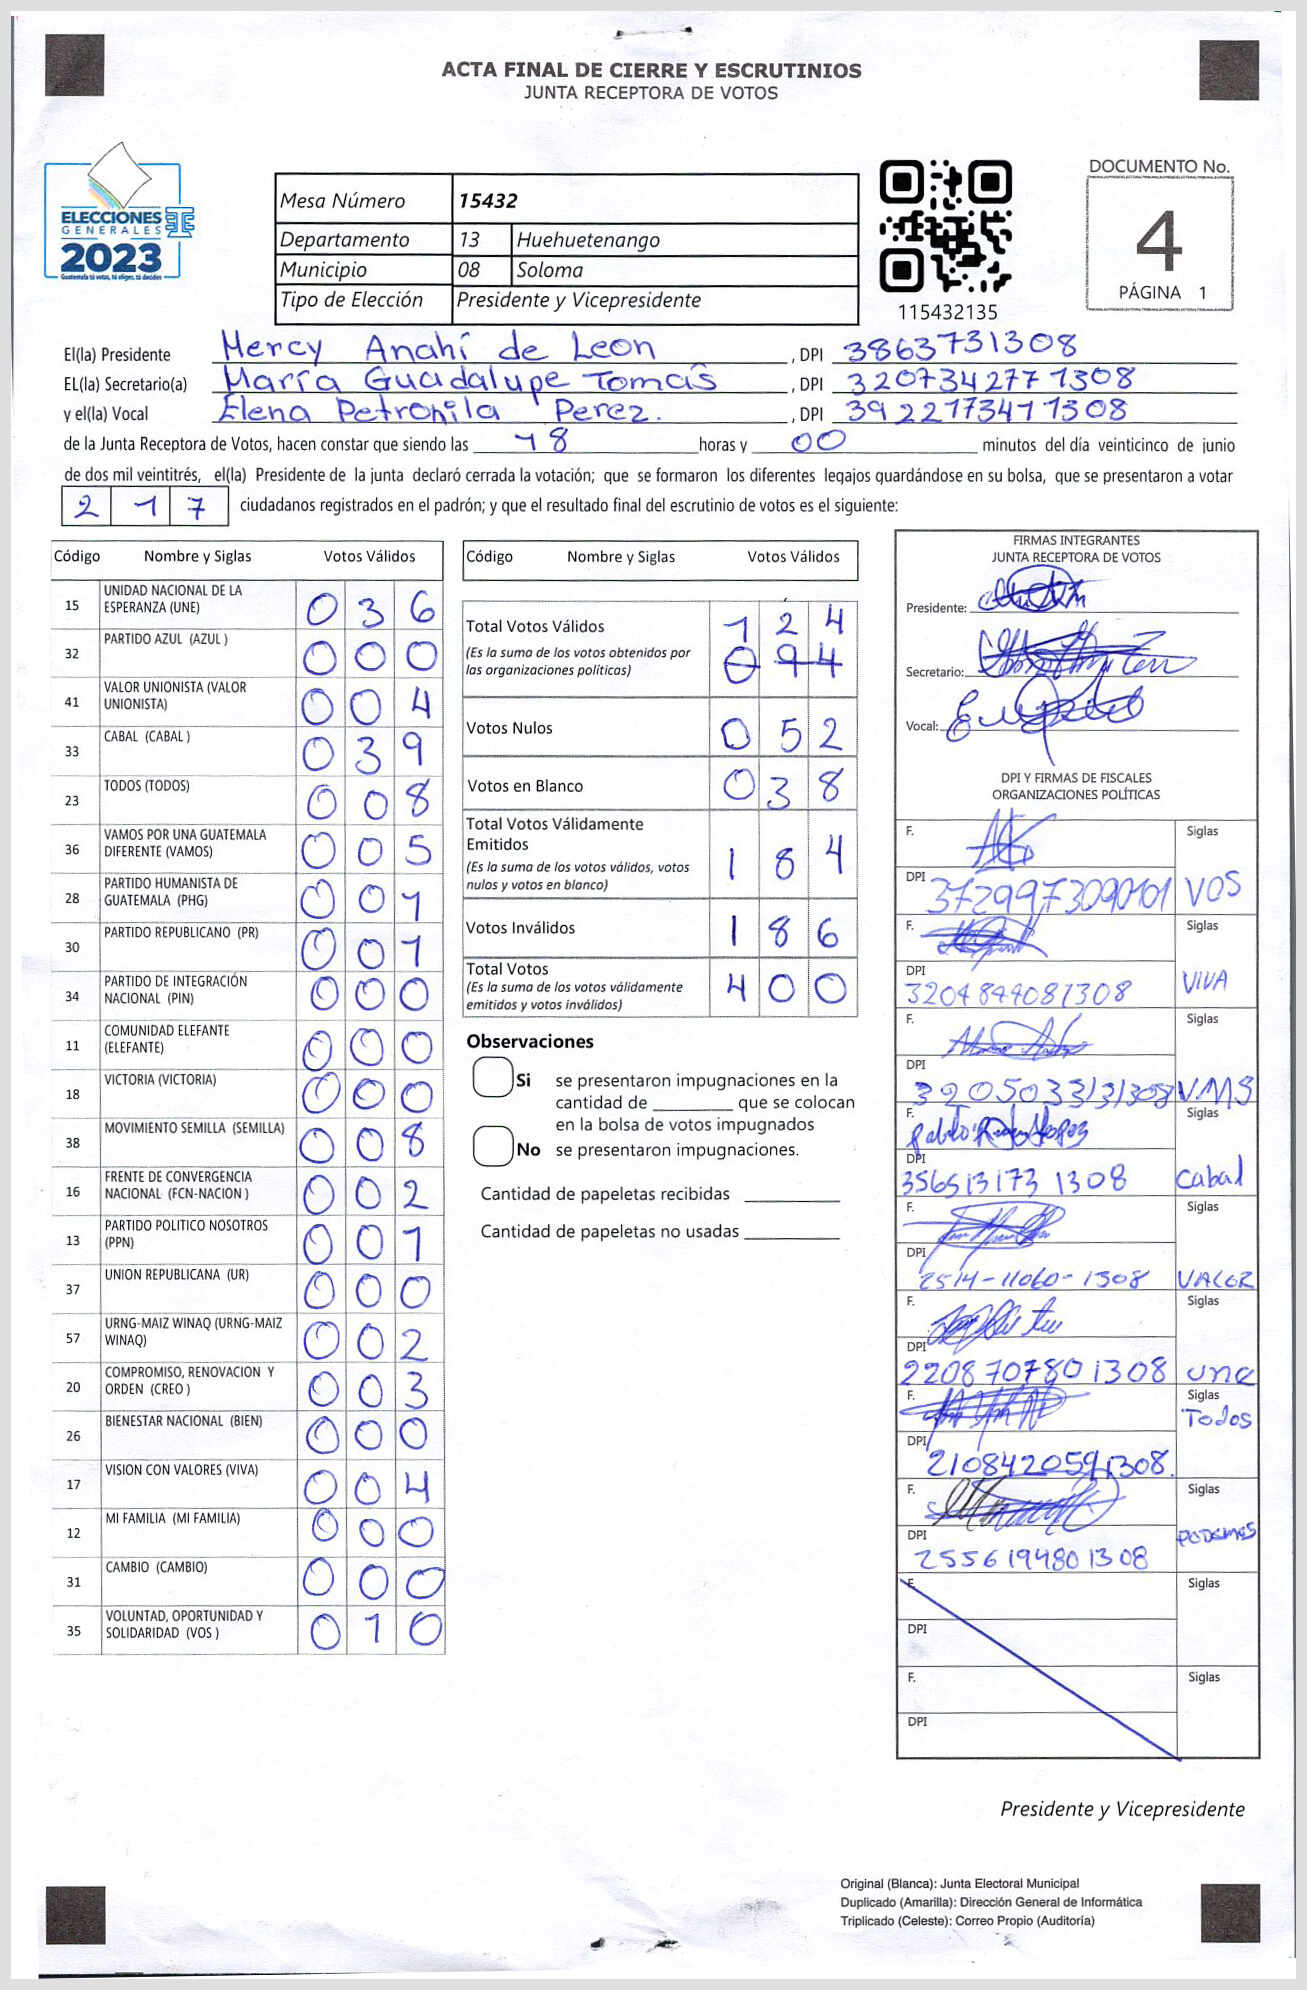 ACTA FINAL DE CIERRE Y ESCRUTINIOS
JUNTA RECEPTORA DE VOTOS
ELECCIONES
GENERALES
2023
Guatemala tú votas, tú eliges, tú decides
Mesa Número 15432
Departamento 13 Huehuetenango
Municipio 08 Soloma
Tipo de Elección Presidente y Vicepresidente
115432135
DOCUMENTO No.
4
PÁGINA 1
El(la) Presidente Mercy Anahí de Leon , DPI 3863731308
EL(la) Secretario(a) María Guadalupe Tomás , DPI 3207342771308
y el(la) Vocal Elena Petronila Perez. , DPI 3922173411308
de la Junta Receptora de Votos, hacen constar que siendo las 18 horas y 00 minutos del día veinticinco de junio
de dos mil veintitrés, el(la) Presidente de la junta declaró cerrada la votación; que se formaron los diferentes legajos guardándose en su bolsa, que se presentaron a votar
2 1 7 ciudadanos registrados en el padrón; y que el resultado final del escrutinio de votos es el siguiente:
Código Nombre y Siglas Votos Válidos
15 UNIDAD NACIONAL DE LA ESPERANZA (UNE) 0 3 6
32 PARTIDO AZUL (AZUL ) 0 0 0
41 VALOR UNIONISTA (VALOR UNIONISTA) 0 0 4
33 CABAL (CABAL ) 0 3 9
23 TODOS (TODOS) 0 0 8
36 VAMOS POR UNA GUATEMALA DIFERENTE (VAMOS) 0 0 5
28 PARTIDO HUMANISTA DE GUATEMALA (PHG) 0 0 1
30 PARTIDO REPUBLICANO (PR) 0 0 1
34 PARTIDO DE INTEGRACIÓN NACIONAL (PIN) 0 0 0
11 COMUNIDAD ELEFANTE (ELEFANTE) 0 0 0
18 VICTORIA (VICTORIA) 0 0 0
38 MOVIMIENTO SEMILLA (SEMILLA) 0 0 8
16 FRENTE DE CONVERGENCIA NACIONAL (FCN-NACION ) 0 0 2
13 PARTIDO POLITICO NOSOTROS (PPN) 0 0 1
37 UNION REPUBLICANA (UR) 0 0 0
57 URNG-MAIZ WINAQ (URNG-MAIZ WINAQ) 0 0 2
20 COMPROMISO, RENOVACION Y ORDEN (CREO ) 0 0 3
26 BIENESTAR NACIONAL (BIEN) 0 0 0
17 VISION CON VALORES (VIVA) 0 0 4
12 MI FAMILIA (MI FAMILIA) 0 0 0
31 CAMBIO (CAMBIO) 0 0 0
35 VOLUNTAD, OPORTUNIDAD Y SOLIDARIDAD (VOS ) 0 1 0
Código Nombre y Siglas Votos Válidos
Total Votos Válidos 1 2 4
(Es la suma de los votos obtenidos por las organizaciones políticas) 0 9 4
Votos Nulos 0 5 2
Votos en Blanco 0 3 8
Total Votos Válidamente Emitidos 1 8 4
(Es la suma de los votos válidos, votos nulos y votos en blanco)
Votos Inválidos 1 8 6
Total Votos 4 0 0
(Es la suma de los votos válidamente emitidos y votos inválidos)
Observaciones
Si se presentaron impugnaciones en la
cantidad de ________ que se colocan
en la bolsa de votos impugnados
No se presentaron impugnaciones.
Cantidad de papeletas recibidas
Cantidad de papeletas no usadas
FIRMAS INTEGRANTES
JUNTA RECEPTORA DE VOTOS
Presidente:
Secretario:
Vocal:
DPI Y FIRMAS DE FISCALES
ORGANIZACIONES POLÍTICAS
F. Siglas
DPI 3729973090101 VOS
F. Siglas
DPI 3204844081308 VIVA
F. Siglas
DPI 3205033131308 VMS
F. Pablo Lopez Siglas
DPI 3565131731308 Cabal
F. Siglas
DPI 2514-11060-1308 VALOR
F. Siglas
DPI 2208707801308 une
F. Siglas
Todos
DPI 2108420591308.
F. Siglas
DPI 2556194801308 PODEMOS
F. Siglas
DPI
F. Siglas
DPI
Presidente y Vicepresidente
Original (Blanca): Junta Electoral Municipal
Duplicado (Amarilla): Dirección General de Informática
Triplicado (Celeste): Correo Propio (Auditoría)